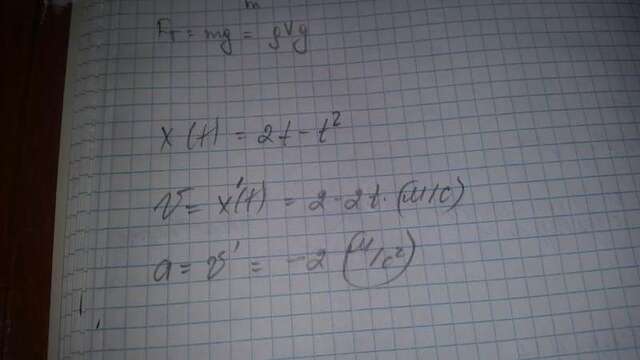 m
Fт = mg = ρVg
x(t) = 2t - t²
V = x'(t) = 2 - 2t. (м/с)
a = v' = -2 (м/с²)